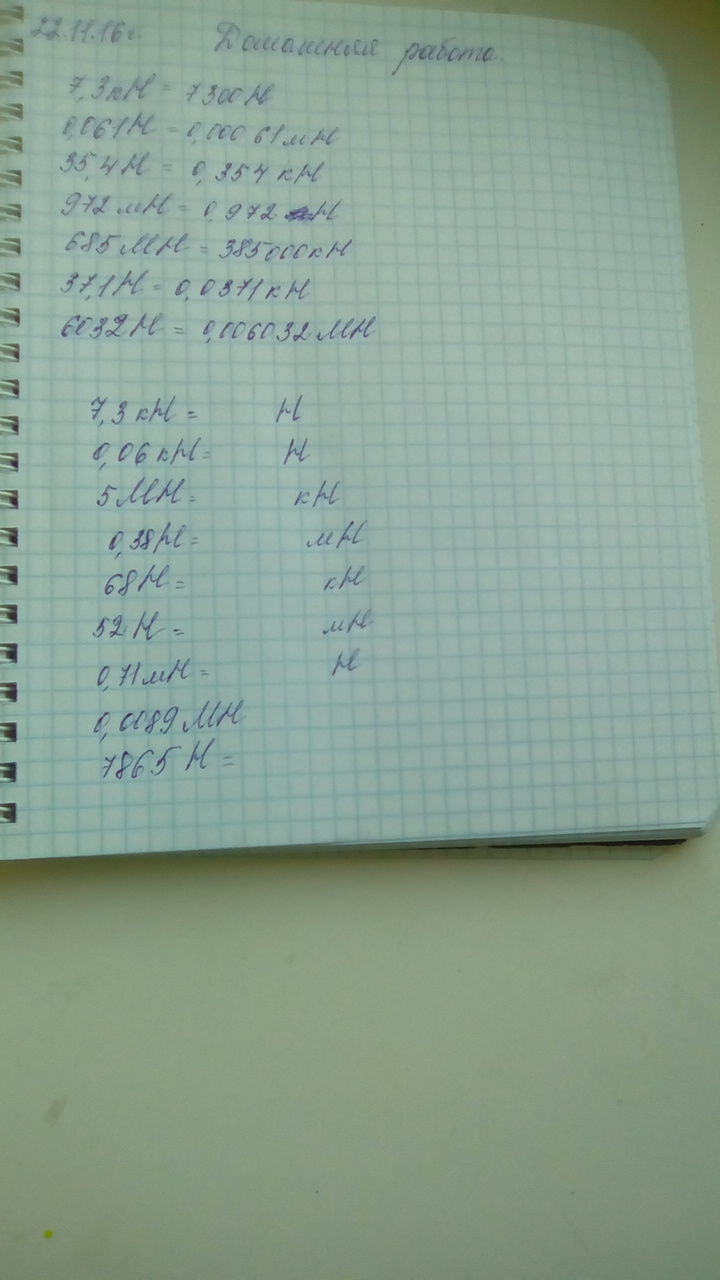 22.11.16г. Домашняя работа.
7,3кН = 7300Н
0,061Н = 0,00061мН
35,4Н = 0,354кН
972мН = 0,972 Н
685МН = 385000кН
37,1Н = 0,0371кН
6032Н = 0,006032МН
7,3кН = Н
0,06кН = Н
5МН = кН
0,38Н = мН
68Н = кН
52Н = мН
0,71мН = Н
0,0089МН
7865Н =